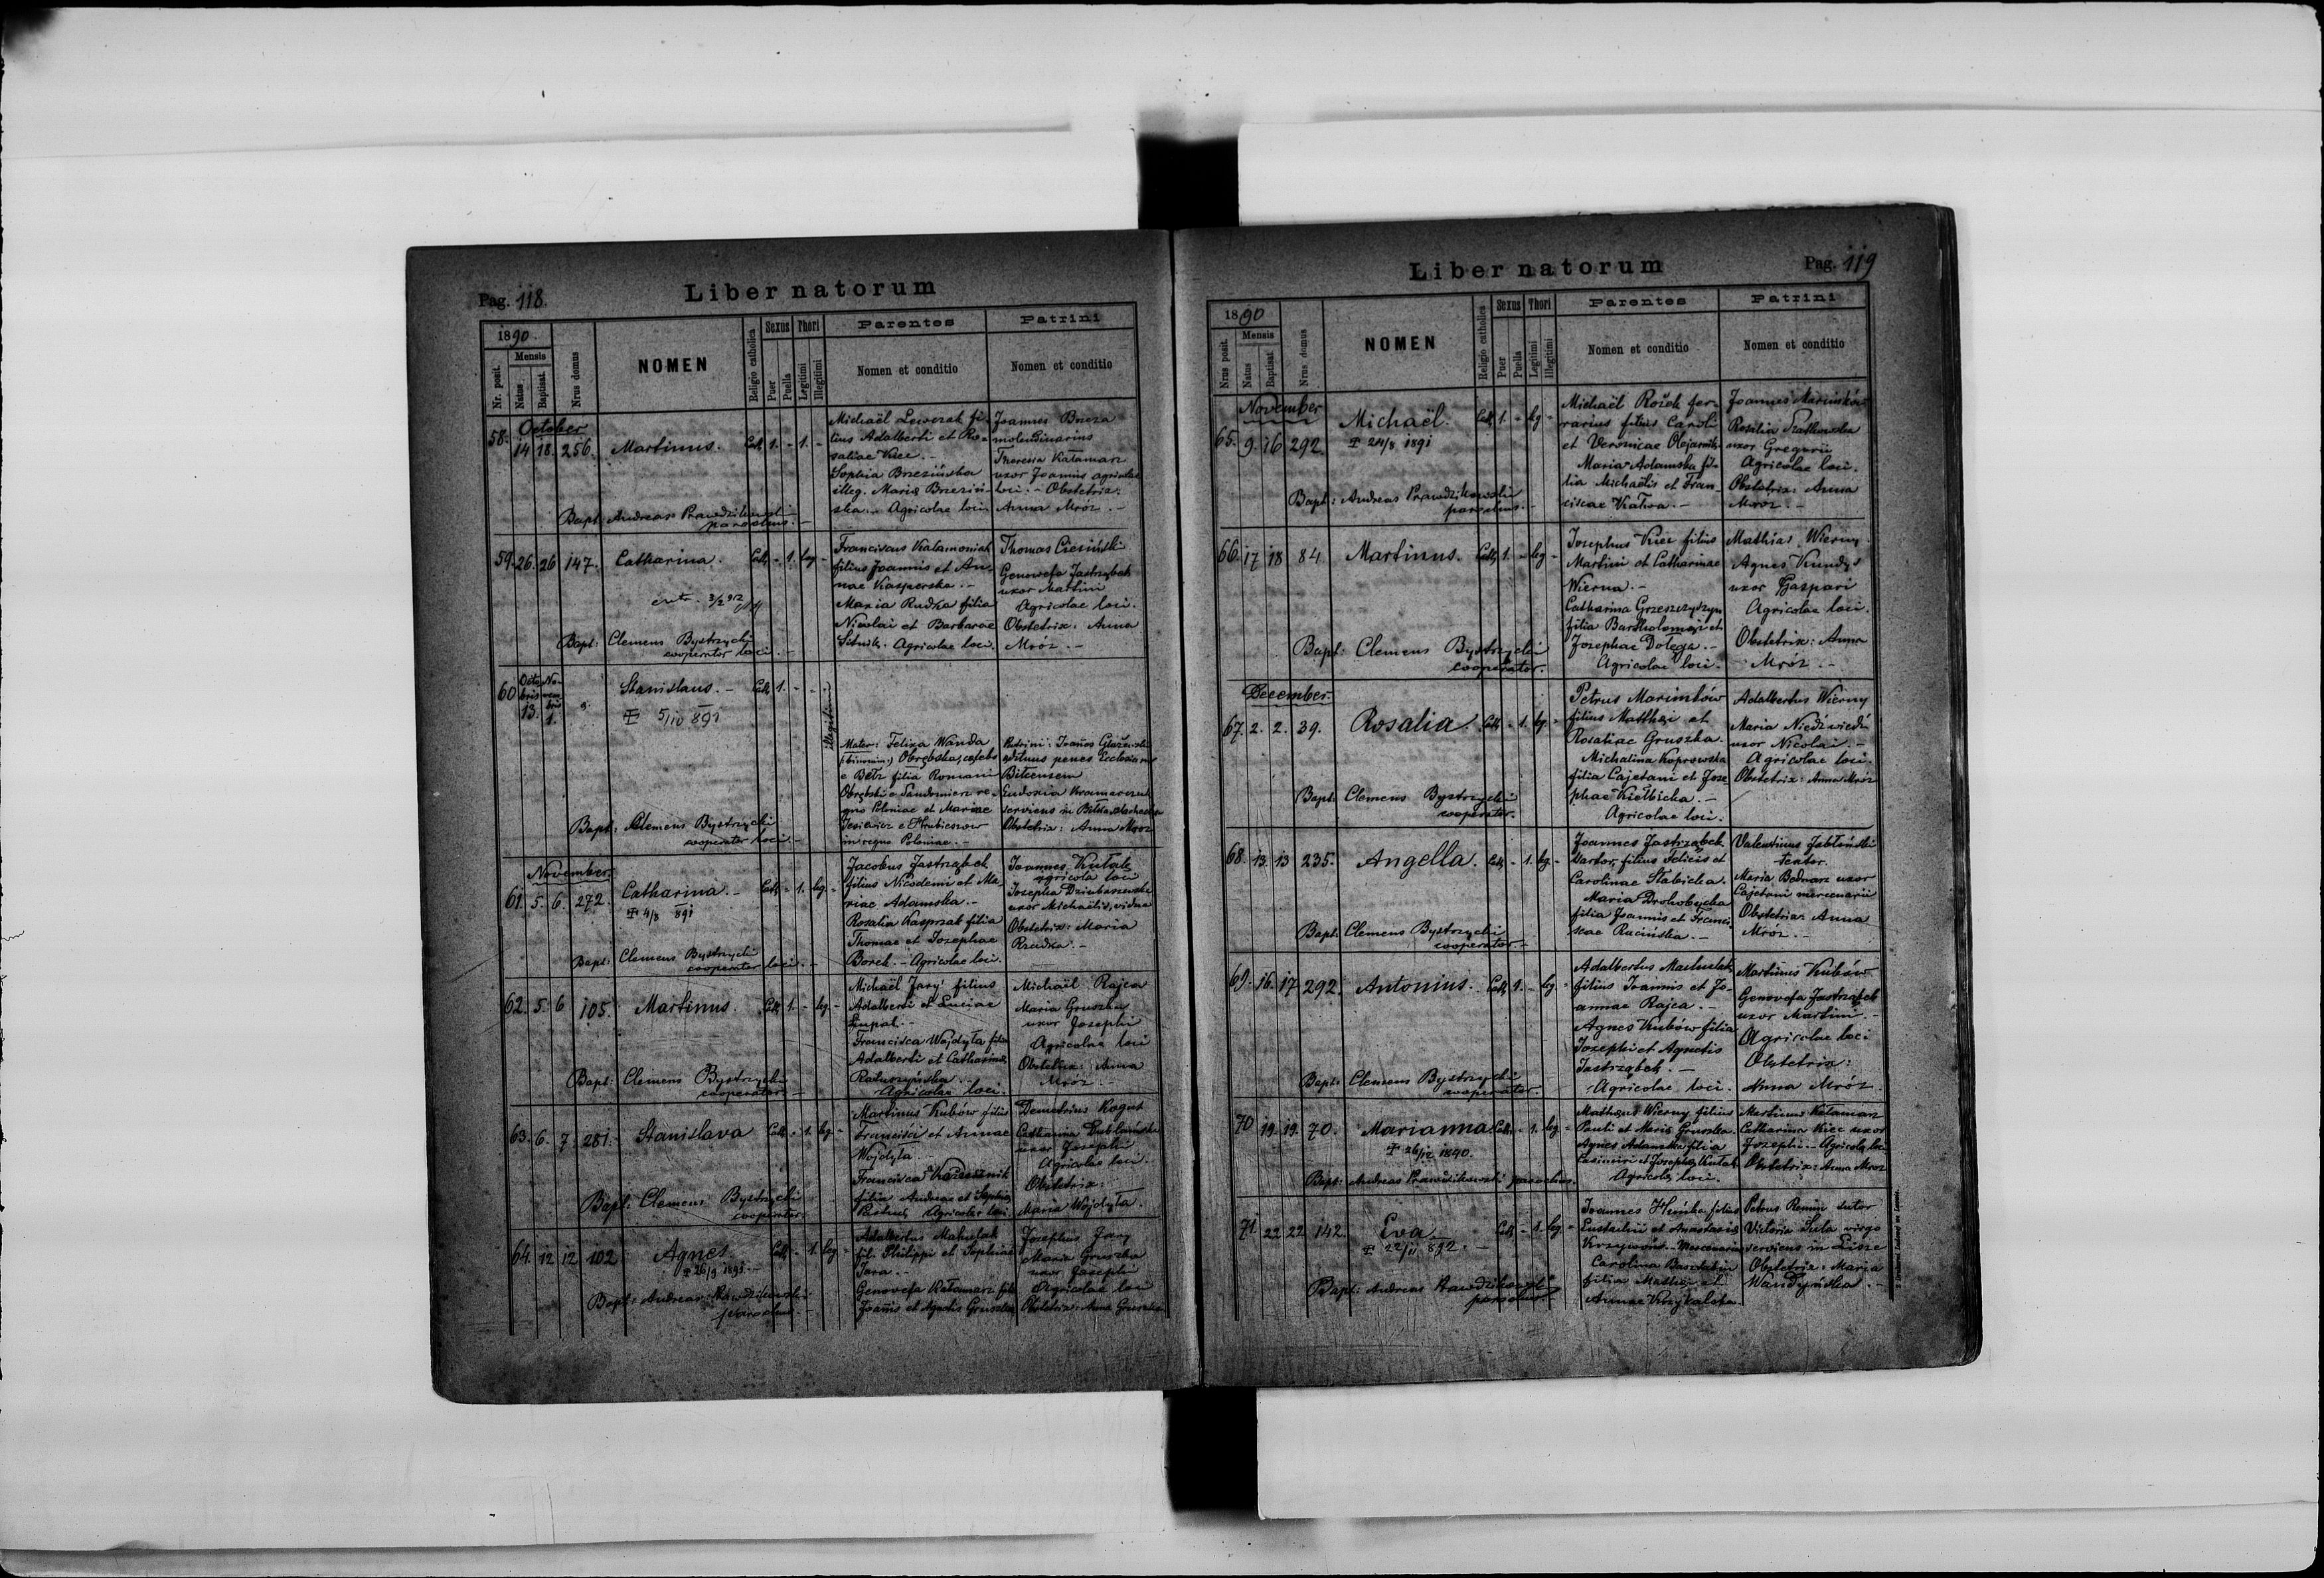 Pag. 118.
Liber natorum
1890.
Nr. posit.
Mensis
Natus
Baptisat.
Nrus domus
NOMEN
Religio catholica
Sexus
Puer
Puella
Thori
Legitimi
Illegitimi
Parentes
Nomen et conditio
Patrini
Nomen et conditio
October
58. 14 18. 256. Martinus. Cath. 1. - 1. -
Michaël Lewczak fi-
lius Adalberti et Ro-
saliae Kiec. -
Sophia Brzezińska
illeg. Mariae Brzeziń-
ska. - Agricolae loci
Joannes Bneza
molendinarius
Theresia Kałamarz
uxor Joannis agricolae
loci. - Obstetrix:
Anna Mroz. -
Bapt: Andreas Prawdzikowski
parochus. -
59. 26. 26 147. Catharina. Cath. - 1. leg -
Franciscus Kalamoniak
filius Joannis et An-
nae Kasperska. -
Maria Rudka filia
Nicolai et Barbarae
Sitnik. Agricolae loci.
Thomas Ciesiński
Genowefa Jastrzębek
uxor Martini
Agricolae loci.
Obstetrix: Anna
Mróz. -
3/2 912
Bapt: Clemens Bystrzycki
cooperator loci. -
60 Octobris 13. Novembris 1. Stanislaus. - Cath. 1. - - illegitimus
5/IV 891
Mater: Felixa Wanda
(binomin.) Obrębska, caelebs
e Bełz filia Romani
Obrębski e Sandomierz re-
gno Poloniae et Mariae
Jesiewicz e Hrubieszow
in regno Poloniae. -
Patrini: Joannes Głażewski
aedituus penes Ecclesiam
Bełzensem
Eudoxia Kramarczuk
serviens in Bełz
Obstetrix: Anna Mroz
Bapt: Clemens Bystrzycki
cooperator loci. -
November.
61. 5. 6. 272. Catharina. - Cath. - 1. leg. -
4/8 891
Jacobus Jastrząbek
filius Nicodemi et Ma-
riae Adamska. -
Rosalia Kasprzak filia
Thomae et Josephae
Borek. - Agricolae loci.
Joannes Kułak
agricola loci
Josepha Dziubaszewska
uxor Michaëlis, vidua
Obstetrix: Maria
Rzudka. -
Bapt: Clemens Bystrzycki
cooperator loci. -
62. 5. 6 105. Martinus. Cath. 1. - leg. -
Michaël Jary filius
Adalberti et Luciae
Francisca Wojdyła filia
Adalberti et Catharinae
Ratuszyńska. -
Agricolae loci.
Michaël Rajca
Maria Gruszka
uxor Josephi
Agricolae loci
Obstetrix: Anna
Mróz. -
Bapt: Clemens Bystrzycki
cooperator. -
63. 6. 7. 281. Stanislava Cath. - 1. leg. -
Martinus Kubów filius
Francisci et Annae
Wojdyła. -
Francisca
filia Andreae et Sophiae
Agricolae loci.
Demetrius Kogut
Catharina
uxor Josephi
Agricolae loci.
Obstetrix:
Maria Wojdyła.
Bapt: Clemens Bystrzycki
cooperator.
64. 12 12 102. Agnes. Cath. - 1. leg. -
26/9 1891. -
Adalbertus Mahulak
fil. Philippi et Sophiae
Jara. -
Genovefa Kałamarz filia
Joannis et Agnetis Gruszka
Josephus Jary
Maria Gruszka
uxor Josephi
Agricolae loci
Obstetrix: Anna Gruszka
Bapt: Andreas Prawdzikowski
parochus. -
Liber natorum
Pag. 119
1890
Nrus posit.
Mensis
Natus
Baptisat.
Nrus domus
NOMEN
Religio catholica
Sexus
Puer
Puella
Thori
Legitimi
Illegitimi
Parentes
Nomen et conditio
Patrini
Nomen et conditio
November
65. 9. 16 292. Michaël. Cath. 1. - leg -
24/8 1891
Michaël Rożek fer-
rarius filius Caroli
et Veronicae Olejarnik
Maria Adamska fi-
lia Michaëlis et Fran-
ciscae Katra. -
Joannes Marimków
Rosalia Szatkowska
uxor Gregorii
Agricolae loci.
Obstetrix: Anna
Mroz. -
Bapt: Andreas Prawdzikowski
parochus. -
66. 17 18 84 Martinus. Cath. 1. - leg -
Josephus Kiec filius
Martini et Catharinae
Wierna. -
Catharina Grzeszczyszyn
filia Bartholomaei et
Josephae Dołęga. -
Agricolae loci.
Mathias Wierny
Agnes Kundys
uxor Gaspari
Agricolae loci.
Obstetrix: Anna
Mróz. -
Bapt: Clemens Bystrzycki
cooperator.
December.
67. 2. 2. 39. Rosalia. Cath. - 1. leg. -
Petrus Marimków
filius Matthaei et
Rosaliae Gruszka.
Michalina Koprowska
filia Cajetani et Jose-
phae Kiełbicka. -
Agricolae loci.
Adalbertus Wierny
Maria Niedźwiedź
uxor Nicolai. -
Agricolae loci.
Obstetrix: Anna Mróz
Bapt: Clemens Bystrzycki
cooperator.
68. 13. 13 235. Angella. Cath. - 1. leg. -
Joannes Jastrząbek
sartor, filius Felicis et
Carolinae Słabicka.
Maria Drohobycka
filia Joannis et Franci-
scae Rucińska. -
Valentinus Jabłoński
textor.
Maria Bednarz uxor
Cajetani mercenarii
Obstetrix: Anna
Mroz. -
Bapt: Clemens Bystrzycki
cooperator. -
69. 16. 17 292. Antonius. Cath. 1. - leg. -
Adalbertus Machulak
filius Joannis et Jo-
annae Rajca. -
Agnes Kubów filia
Josephi et Agnetis
Jastrząbek. -
Agricolae loci.
Martinus Kubów
Genovefa Jastrząbek
uxor Martini. -
Agricolae loci
Obstetrix:
Anna Mróz.
Bapt: Clemens Bystrzycki
cooperator.
70 19. 19. 70. Marianna Cath. - 1. leg. -
26/12 1890.
Mathaeus Wierny filius
Pauli et Mariae Gruszka.
Agnes Adamska filia
Casimiri et Josephae Kułak
Agricolae loci.
Martinus Kałamarz
Catharina Kiec uxor
Josephi. - Agricolae loci
Obstetrix: Anna Mroz
Bapt: Andreas Prawdzikowski parochus.
71. 22 22 142. Eva. Cath. - 1. leg. -
22/11 892. -
Joannes Hińka filius
Eustachii et Anastasiae
Carolina
filia Mathiae et
Annae
Petrus Romin sutor
Victoria Suta virgo
serviens in
Obstetrix: Maria
Wandyńska. -
Bapt: Andreas Prawdzikowski
parochus.